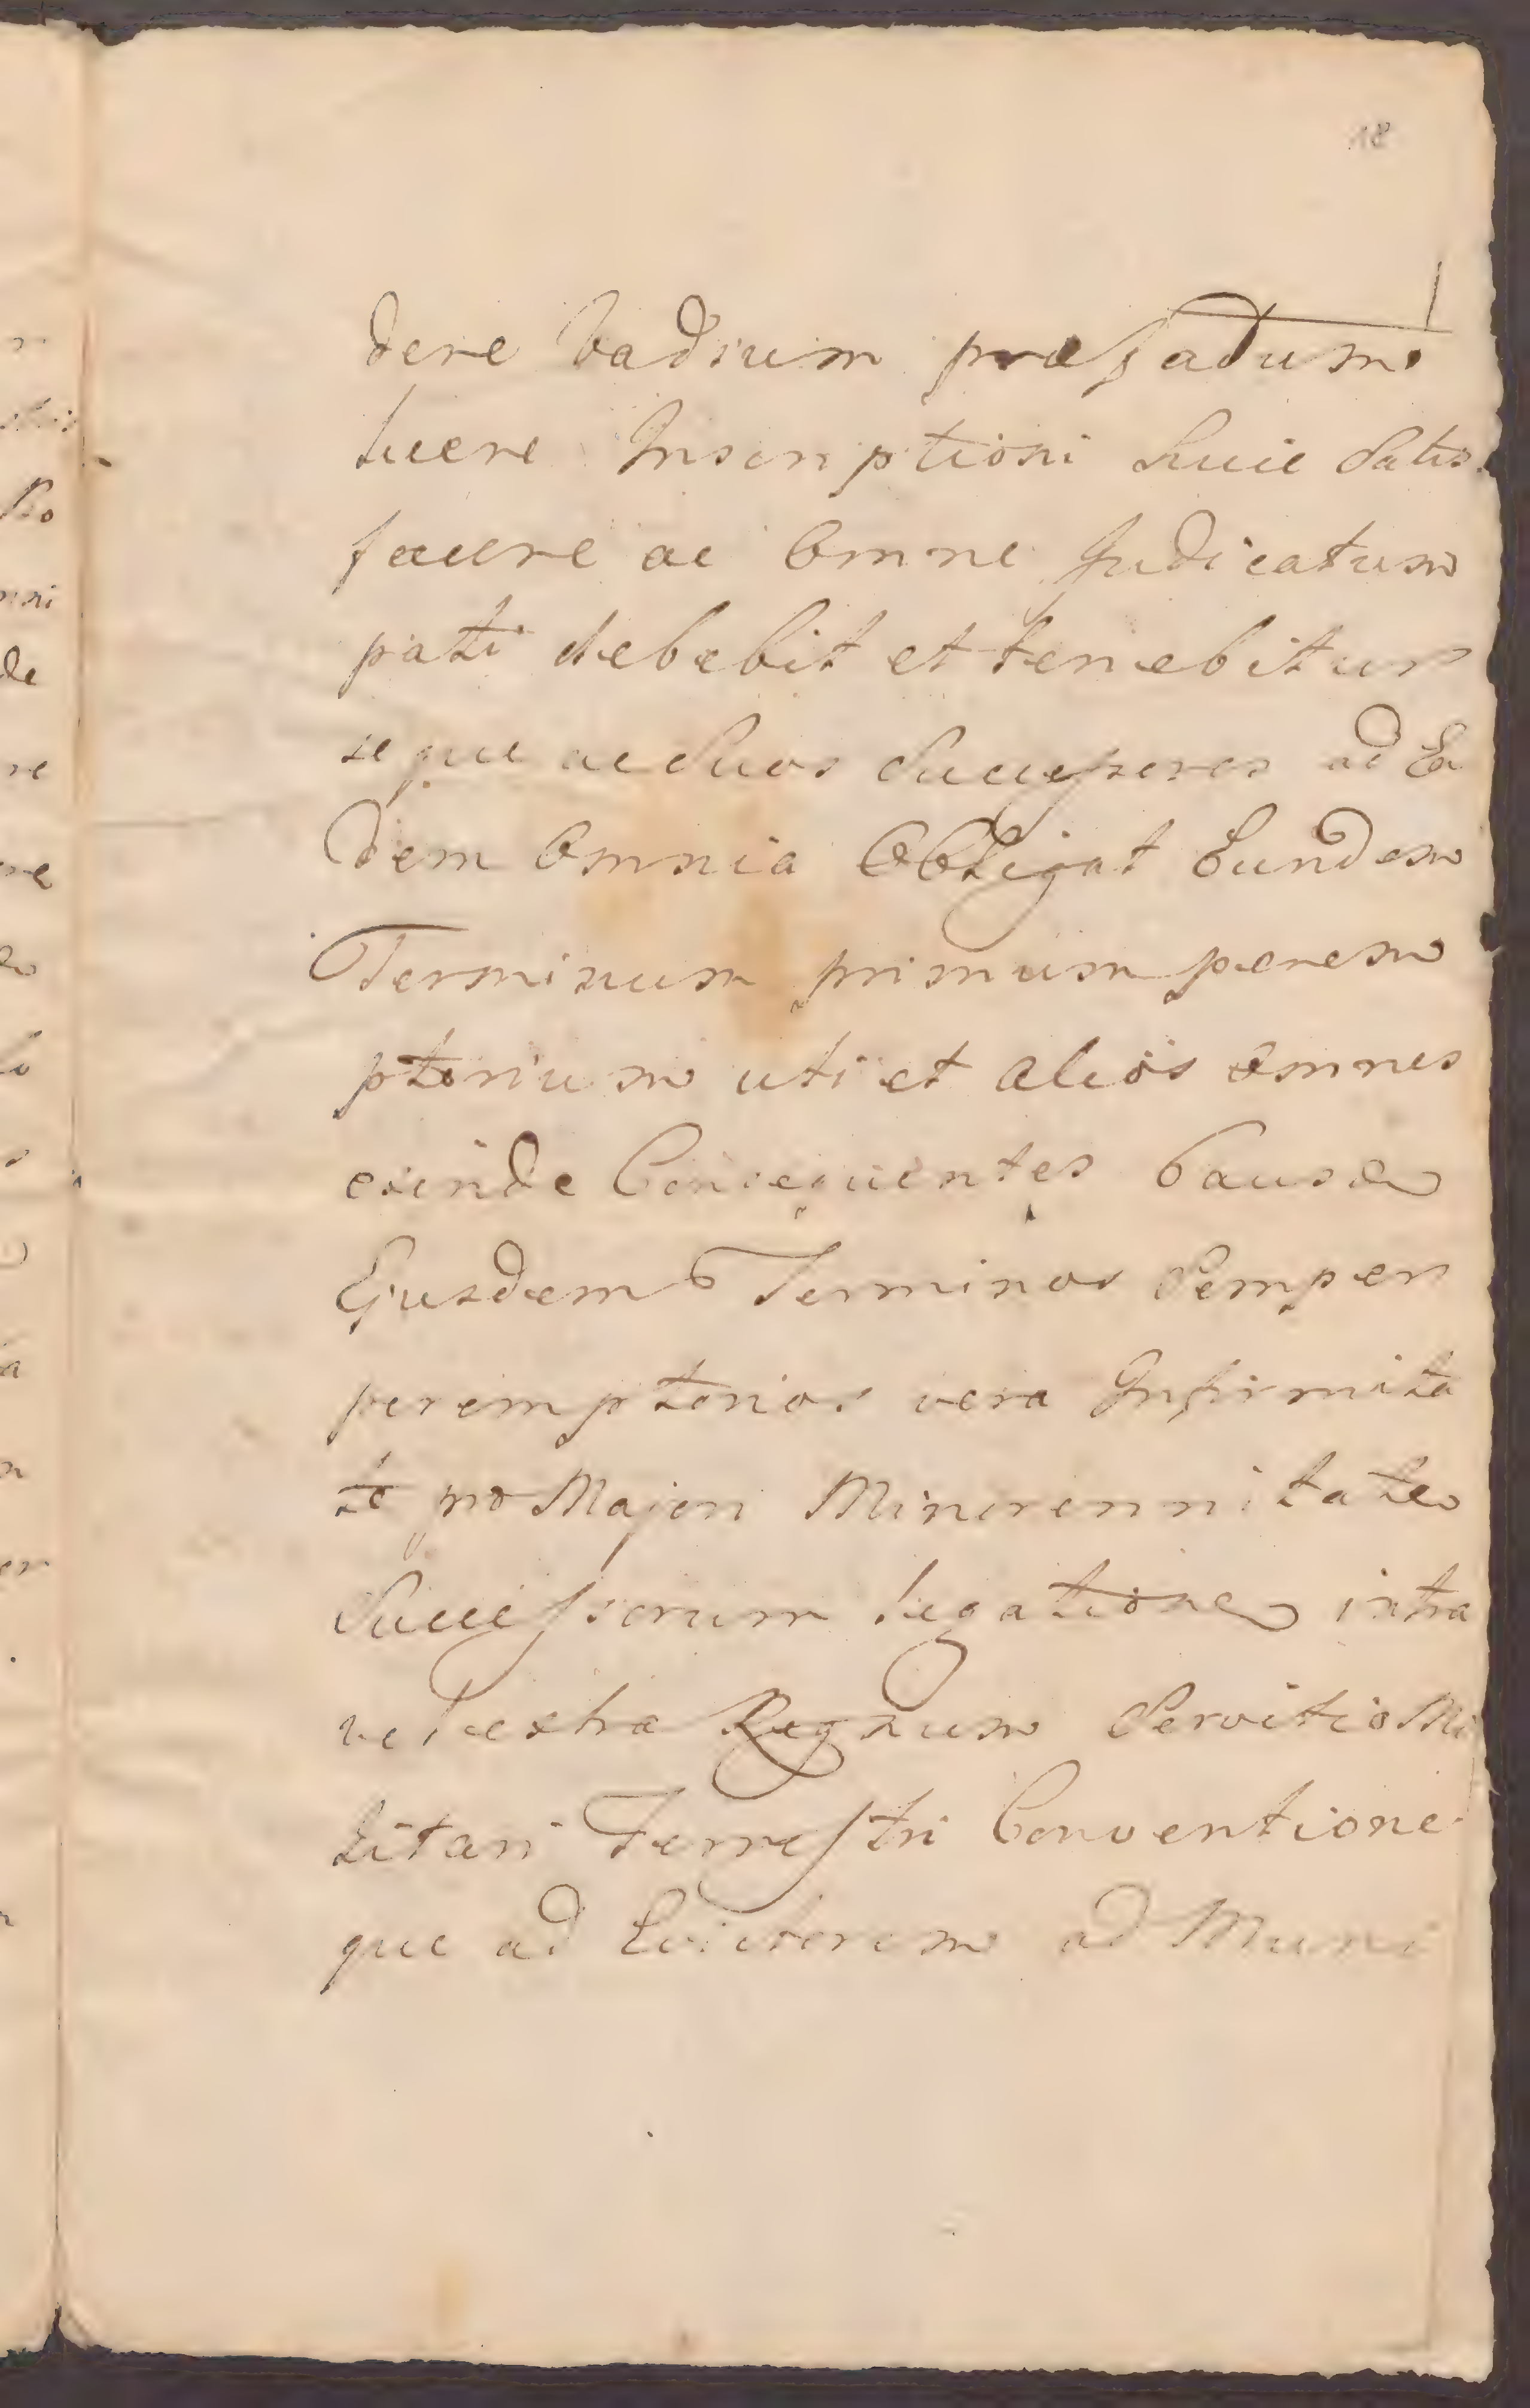 18
dere Vadium præfatum
luere Inscriptioni huic Satis
facere ac Omne Judicatum
pati debebit et tenebitur
seque ac Suos Successores ad Ea
dem Omnia Obligat Eundem
Terminum primum perem
ptorium uti et alios omnes
exinde Consequentes Causæ
Ejusdem Terminos Semper
peremptorios vera Infirmita
te pro Majori Minorennitate
Successorum Legatione intra
vel extra Regnum Servitio Mi
litari Terrestri Conventione
que ad Exiterum ad Muni